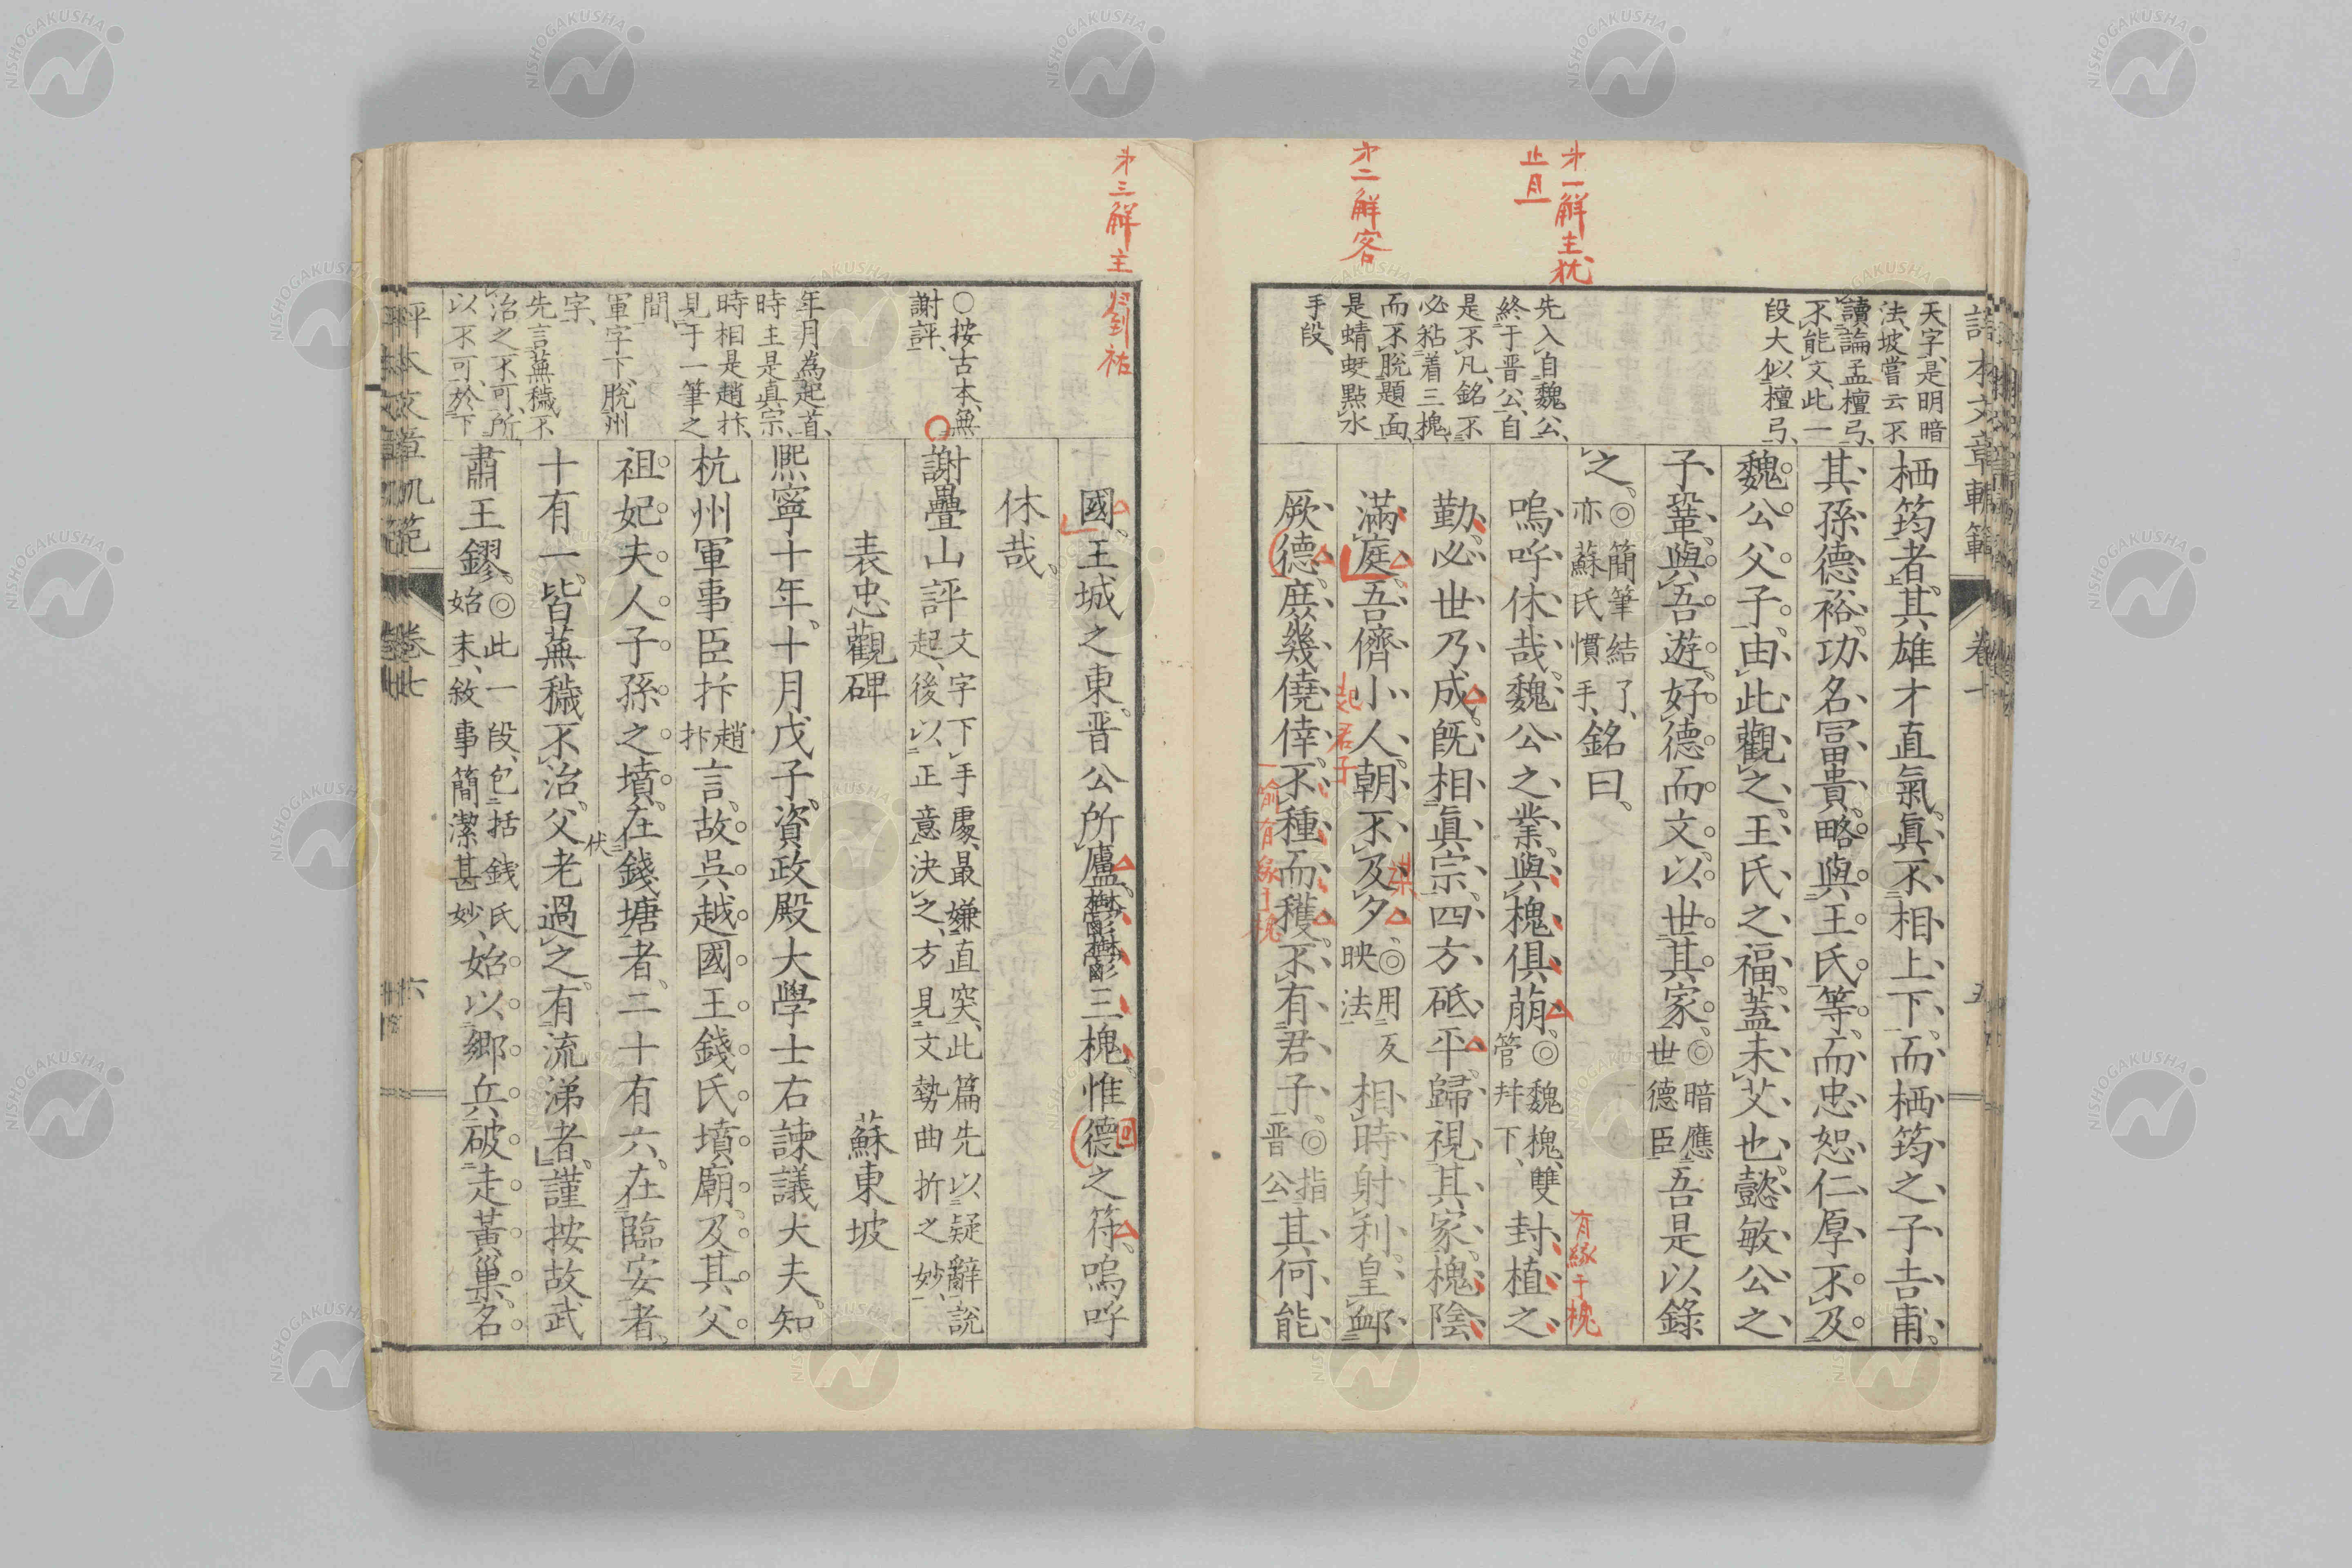 第一解主、犹
止月
第二解客
天字、是明暗
法、坡嘗云不
讀論孟檀弓、
不能文、此一
段大似檀弓、
先入自魏公、
終于晋公、自
是不凡、銘不
必粘着三槐、
而不脫題面、
是蜻蜓點水
手段、
栖筠者。其雄才直氣。眞不相上下。而栖筠之子吉甫。
其孫德裕。功名富貴。略與王氏等。而忠恕仁厚。不及
魏公父子。由此觀之。王氏之福。蓋未艾也。懿敏公之
子鞏與吾遊。好德而文。以世其家。◎暗應世德臣吾是以錄
之。◎簡筆結了、亦蘇氏慣手、銘曰。
嗚呼休哉。魏公之業。與槐俱萠。◎魏槐雙管幷下、封植之
勤。必世乃成。旣相眞宗。四方砥平。歸視其家。槐陰
滿庭。吾儕小人。朝不及夕。◎用反映法相時射利。皇䘏
厥德。庶幾僥倖。不種而穫。不有君子。◎指晋公其何能
有緣于槐
起君子
卷七
五
第三解主
劉祐
○按古本、無
謝評、
年月為起首、
時主是真宗、
時相是趙抃、
見于一筆之
間、
軍字下、脫州
字、
先言蕪穢不
治之不可、所
以不可、於下
國。王城之東。晋公所廬。鬱鬱三槐。惟德之符。嗚呼
休哉。
謝疊山評 文字下手處、最嫌直突、此篇先以疑辭說起、後以正意決之、方見文勢曲折之妙、
表忠觀碑 蘇東坡
熈寧十年。十月戊子。資政殿大學士右諫議大夫。知
杭州軍事臣抃趙抃言。故吳越國王錢氏墳廟。及其父
祖妃夫人子孫之墳。在錢塘者。二十有六。在臨安者。
伏
十有一。皆蕪穢不治。父老過之。有流涕者。謹按故武
肅王鏐。◎此一段、包括錢氏始末、敘事簡潔甚妙、始以鄉兵。破走黃巢。名
評本文章軌範
卷七
六
NISHOGAKUSHA